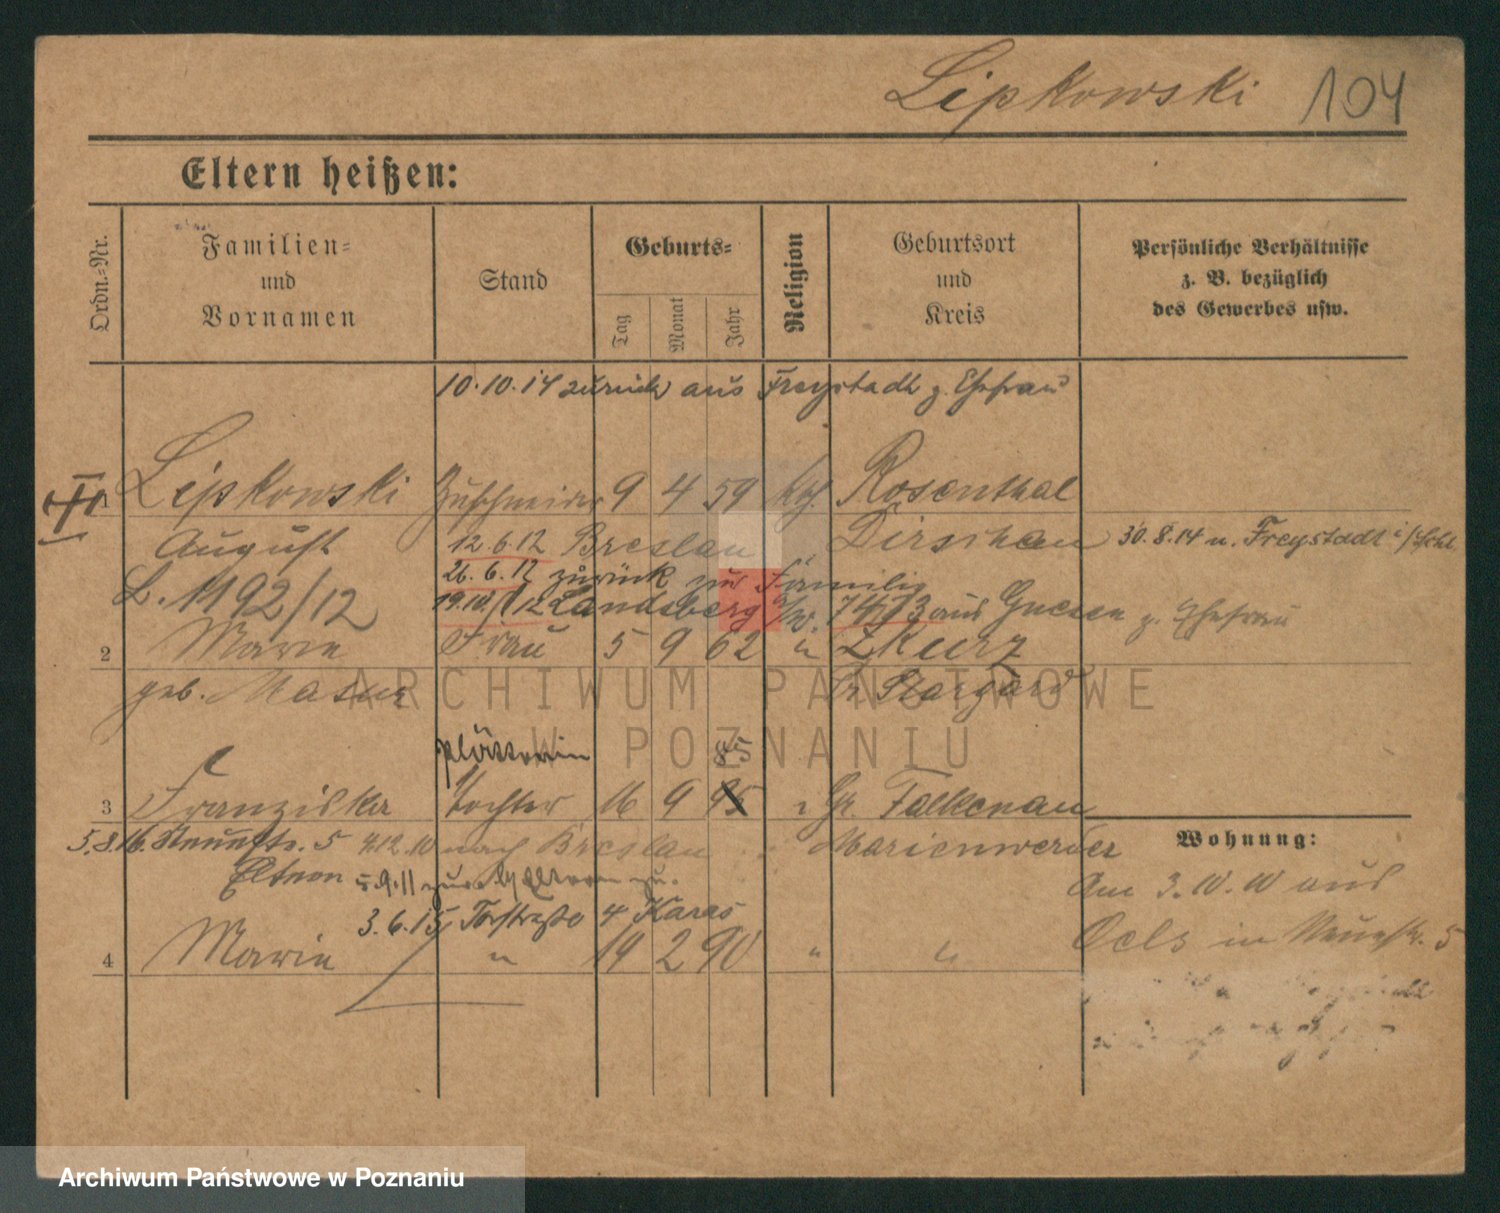 Lipkowski 104
Eltern heißen:
Ordn.=Nr.
Familien=
und
Vornamen
Stand
Geburts=
Tag
Monat
Jahr
Religion
Geburtsort
und
Kreis
Persönliche Verhältnisse
z. B. bezüglich
des Gewerbes usw.
10.10.14 zurück aus Freystadt z. Ehefrau
1 Lipkowski Zuschneider 9 4 59 kth. Rosenthal
August 12.6.12 Breslau Dirschau 30.8.14 n. Freystadt i/Schl
26.6.12 zurück zur Familie
L. 1192/12 19.10. 12 Landsberg a/W. 7473 aus Gnesen z. Ehefrau
2 Marie Frau 5 9 62 " Lkurz
geb. Masur Pr. Stargard
Plätterin 85
3 Franziska Tochter 16 9 95 " Gr. Falkenau
5.8.16. Neuestr. 5 7.12.10 nach Breslau Marienwerder
Wohnung:
Eltern 5.9.11 Eltern zu.
Am 3.10.10 aus
3.6.15 Torstraße 4 Karas
Oels in Neuestr. 5
4 Marie " 19 2 90 " "
ARCHIWUM PAŃSTWOWE
W POZNANIU
Archiwum Państwowe w Poznaniu